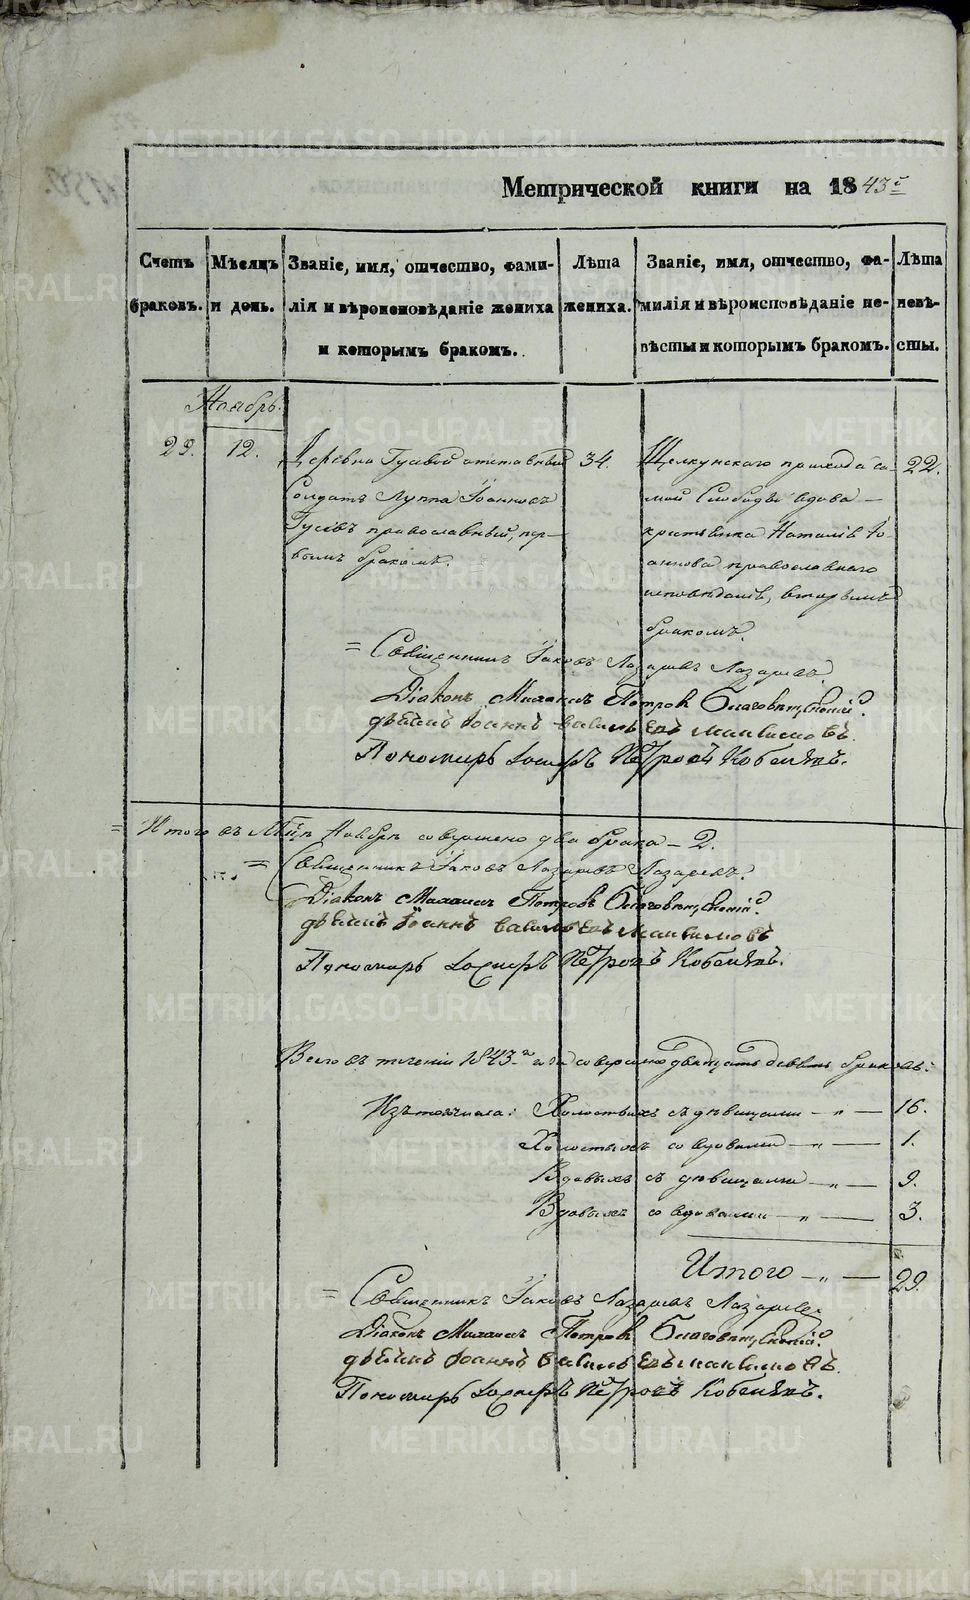 Метрической книги на 1843.г
Счетъ браковъ.
Мѣсяцъ и день.
Званіе, имя, отчество, фами-
лія и вѣроисповѣданіе жениха
и которымъ бракомъ.
Лѣта
жениха.
Званіе, имя, отчество, фа-
милія и вѣроисповѣданіе не-
вѣсты и которымъ бракомъ.
Лѣта
невѣ-
сты.
Ноябрь.
29.
12.
Деревни Гусевой отставный
Солдатъ Луппа Іоанновъ
Гусевъ православный, пер-
вымъ бракомъ.
34.
Щелкунскаго прихода са-
мой Слободы вдова
крестьянка Наталія Іо-
аннова православнаго
исповѣданія, вторымъ
бракомъ.
22.
= Священникъ Іаковъ Лазаревъ Лазаревъ
Діаконъ Михаилъ Петровъ Благовѣщенскій.
дьячекъ Іоаннъ Васильевъ Максимовъ.
Пономарь Іосифъ Петровъ Кобелевъ.
= Итого въ Мцѣ Ноябрѣ совершено два брака — 2.
= Священникъ Іаковъ Лазаревъ Лазаревъ.
Діаконъ Михаилъ Петровъ Благовѣщенскій.
дьячекъ Іоаннъ Васильевъ Максимовъ
Пономарь Іосифъ Петровъ Кобелевъ.
Всего въ теченіи 1843-го года совершено двадцать девять браковъ:
Изъ того числа: Холостыхъ съ дѣвицами — „ — 16.
Холостыхъ со вдовами — „ — 1.
Вдовыхъ съ дѣвицами — „ — 9.
Вдовыхъ со вдовами — „ — 3.
Итого — „ — 29.
= Священникъ Іаковъ Лазаревъ Лазаревъ
Діаконъ Михаилъ Петровъ Благовѣщенскій.
дьячекъ Іоаннъ Васильевъ Максимовъ.
Пономарь Іосифъ Петровъ Кобелевъ.
METRIKI.GASO-URAL.RU